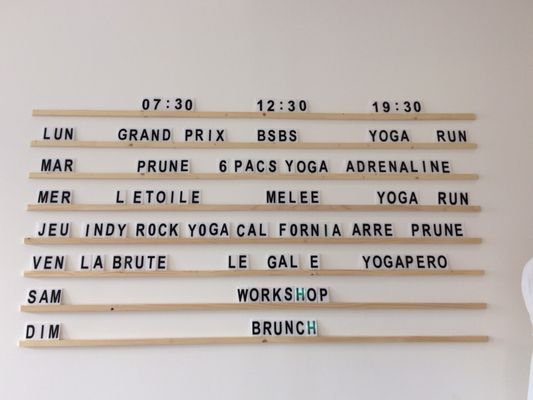 07:30 12:30 19:30
LUN GRAND PRIX BSBS YOGA RUN
MAR PRUNE 6 PACS YOGA ADRENALINE
MER LETOILE MELEE YOGA RUN
JEU INDY ROCK YOGA CAL FORNIA ARRE PRUNE
VEN LA BRUTE LE GAL E YOGAPERO
SAM WORKSHOP
DIM BRUNCH